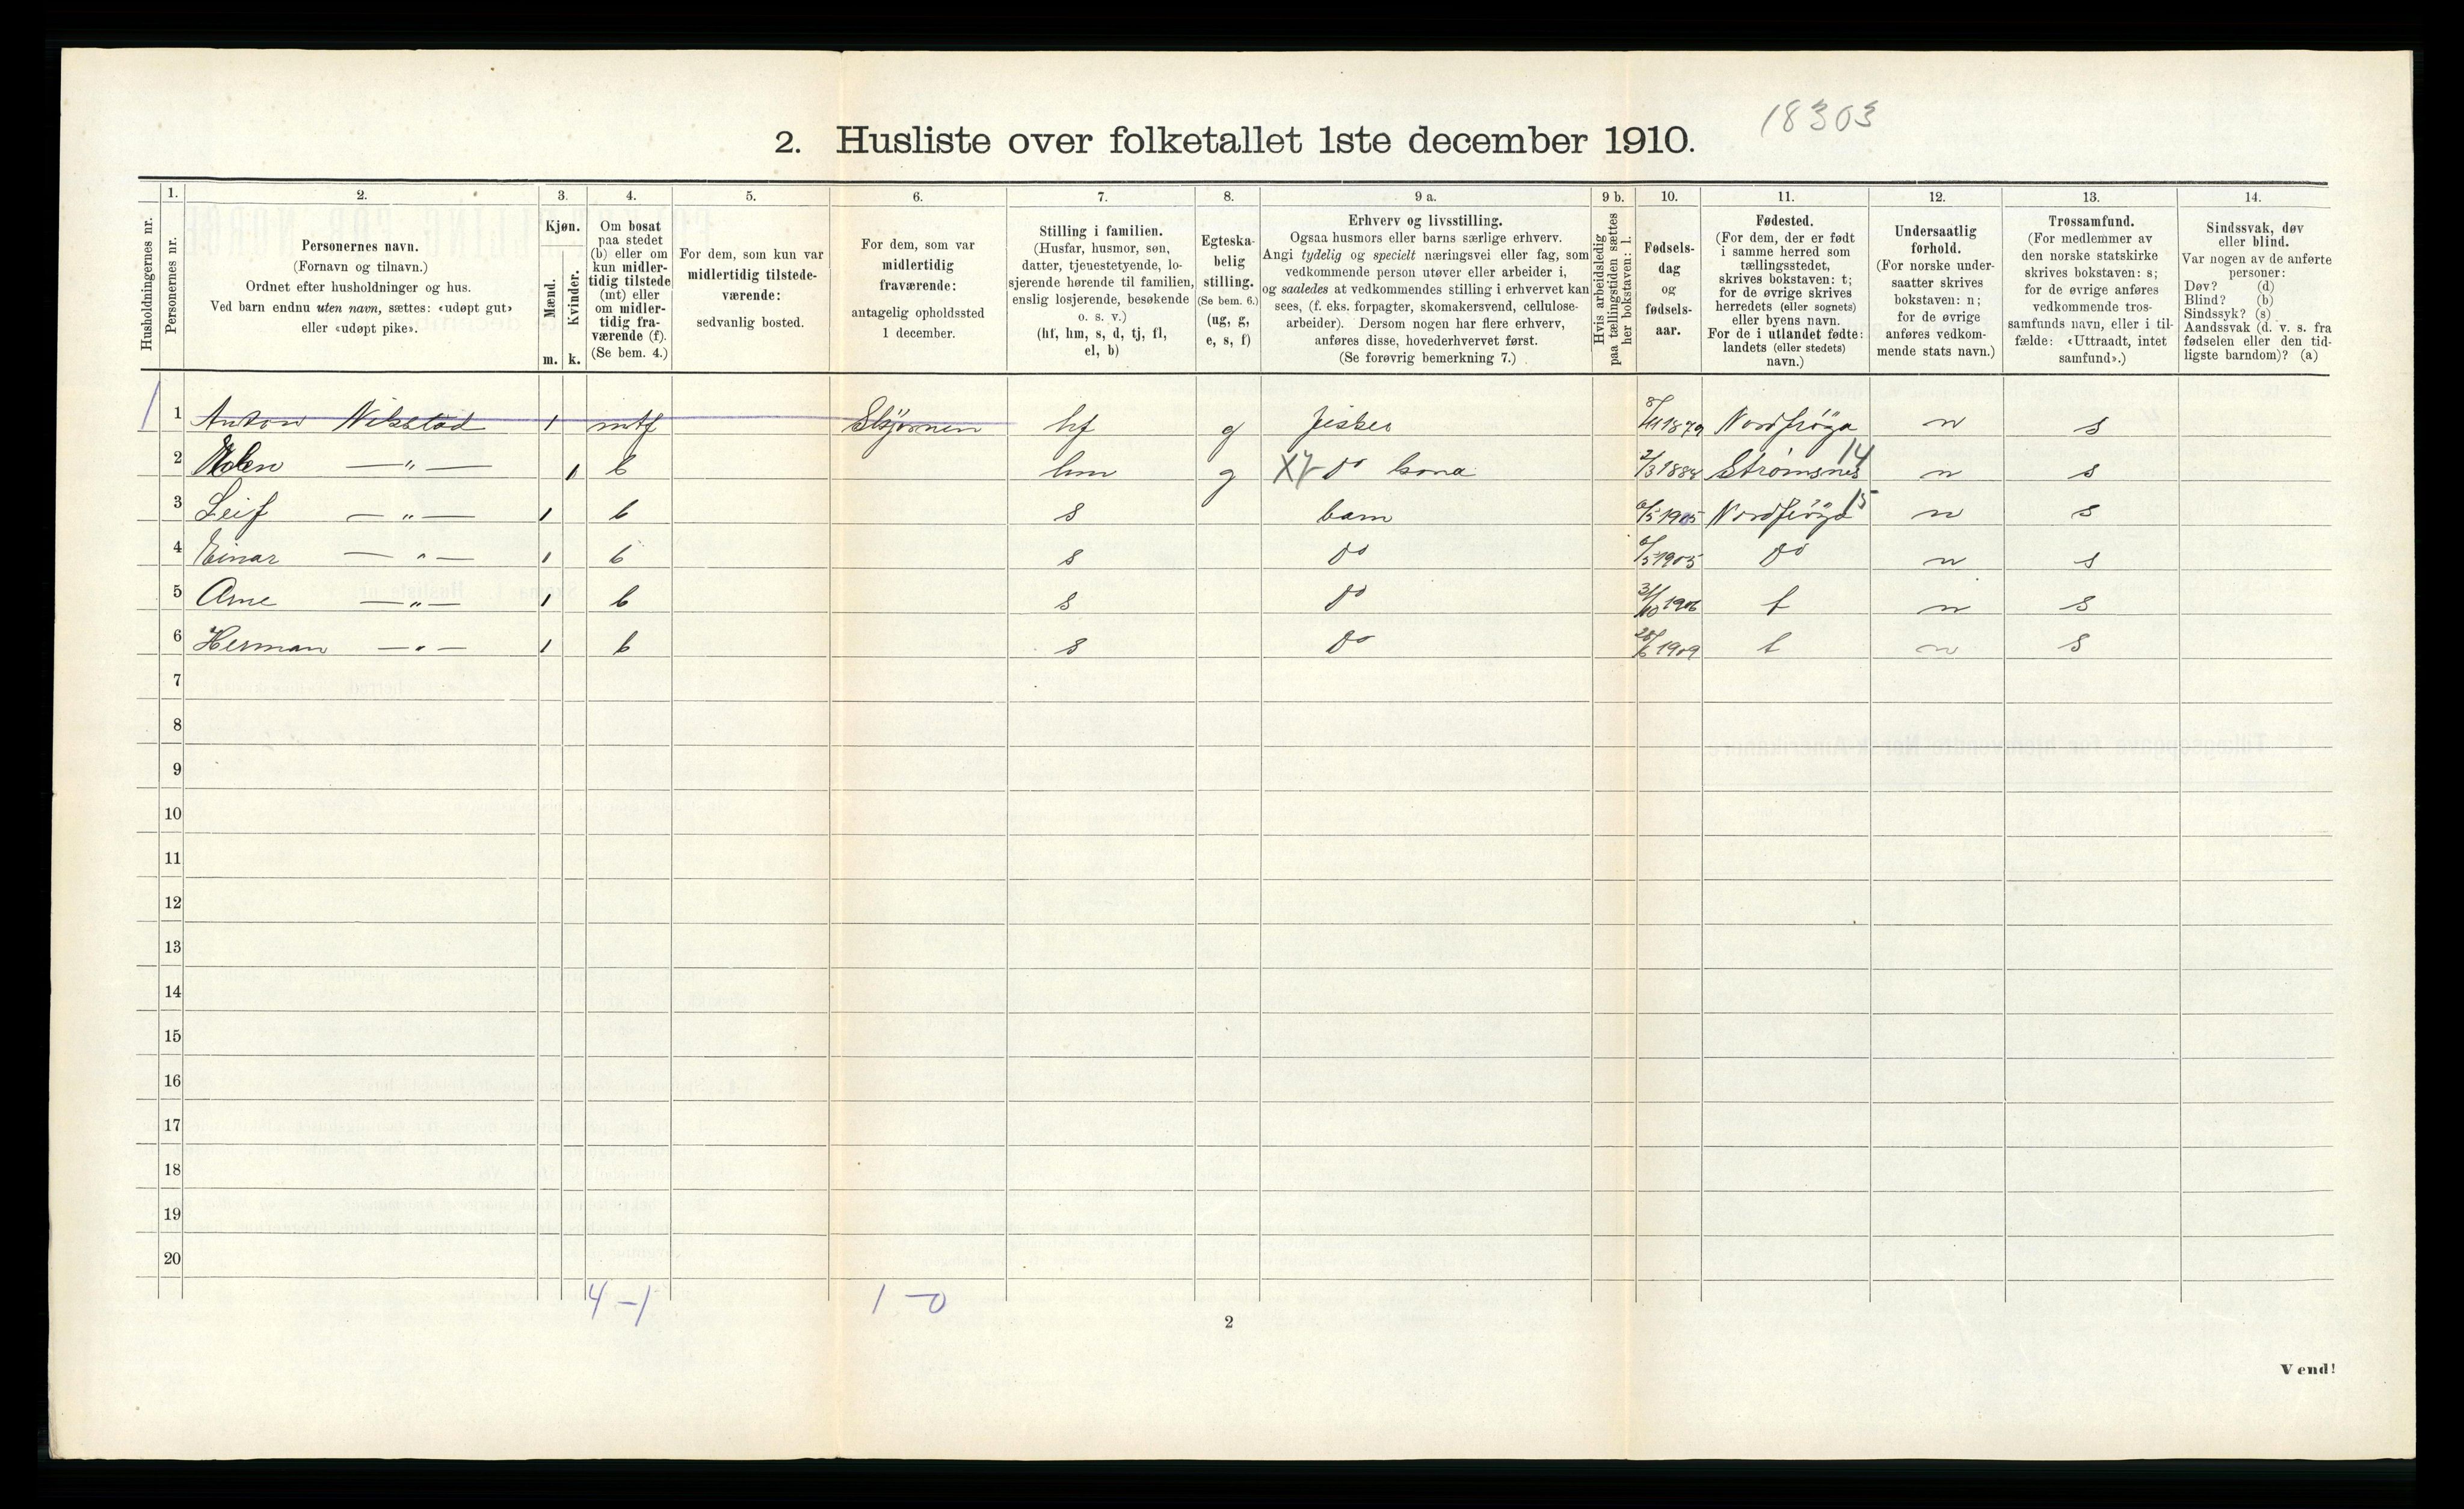 18303
2. Husliste over folketallet 1ste december 1910.
1. 2. 3. 4. 5. 6. 7. 8. 9 a. 9 b. 10. 11. 12. 13. 14.
Husholdningernes nr.
Personernes nr.
Personernes navn.
(Fornavn og tilnavn.)
Ordnet efter husholdninger og hus.
Ved barn endnu uten navn, sættes: «udøpt gut»
eller «udøpt pike».
Kjøn.
Mænd.
Kvinder.
m. k.
Om bosat
paa stedet
(b) eller om
kun midler-
tidig tilstede
(mt) eller
om midler-
tidig fra-
værende (f).
(Se bem. 4.)
For dem, som kun var
midlertidig tilstede-
værende:
sedvanlig bosted.
For dem, som var
midlertidig
fraværende:
antagelig opholdssted
1 december.
Stilling i familien.
(Husfar, husmor, søn,
datter, tjenestetyende, lo-
sjerende hørende til familien,
enslig losjerende, besøkende
o. s. v.)
(hf, hm, s, d, tj, fl,
el, b)
Egteska-
belig
stilling.
(Se bem. 6.)
(ug, g,
e, s, f)
Erhverv og livsstilling.
Ogsaa husmors eller barns særlige erhverv.
Angi tydelig og specielt næringsvei eller fag, som
vedkommende person utøver eller arbeider i,
og saaledes at vedkommendes stilling i erhvervet kan
sees, (f. eks. forpagter, skomakersvend, cellulose-
arbeider). Dersom nogen har flere erhverv,
anføres disse, hovederhvervet først.
(Se forøvrig bemerkning 7.)
Hvis arbeidsledig
paa tællingstiden sættes
her bokstaven: l.
Fødsels-
dag
og
fødsels-
aar.
Fødested.
(For dem, der er født
i samme herred som
tællingsstedet,
skrives bokstaven: t;
for de øvrige skrives
herredets (eller sognets)
eller byens navn.
For de i utlandet fødte:
landets (eller stedets)
navn.)
Undersaatlig
forhold.
(For norske under-
saatter skrives
bokstaven: n;
for de øvrige
anføres vedkom-
mende stats navn.)
Trossamfund.
(For medlemmer av
den norske statskirke
skrives bokstaven: s;
for de øvrige anføres
vedkommende tros-
samfunds navn, eller i til-
fælde: «Uttraadt, intet
samfund».)
Sindssvak, døv
eller blind.
Var nogen av de anførte
personer:
Døv? (d)
Blind? (b)
Sindssyk? (s)
Aandssvak (d. v. s. fra
fødselen eller den tid-
ligste barndom)? (a)
1 1 Anton 1 hf g fisker 8/11 1879 Nordfrøya n s
2 —"— 1 b hm g X7 do kona 2/3 1884 Strømsnes 14 n s
3 Leif —"— 1 b s barn 6/5 1905 Nordfrøya 15 n s
4 Einar —"— 1 b s do 6/5 1905 do n s
5 Arne —"— 1 b s do 31/10 1906 t n s
6 Herman —"— 1 b s do 28/6 1909 t n s
7
8
9
10
11
12
13
14
15
16
17
18
19
20
4 – 1 1 – 0
2
Vend!